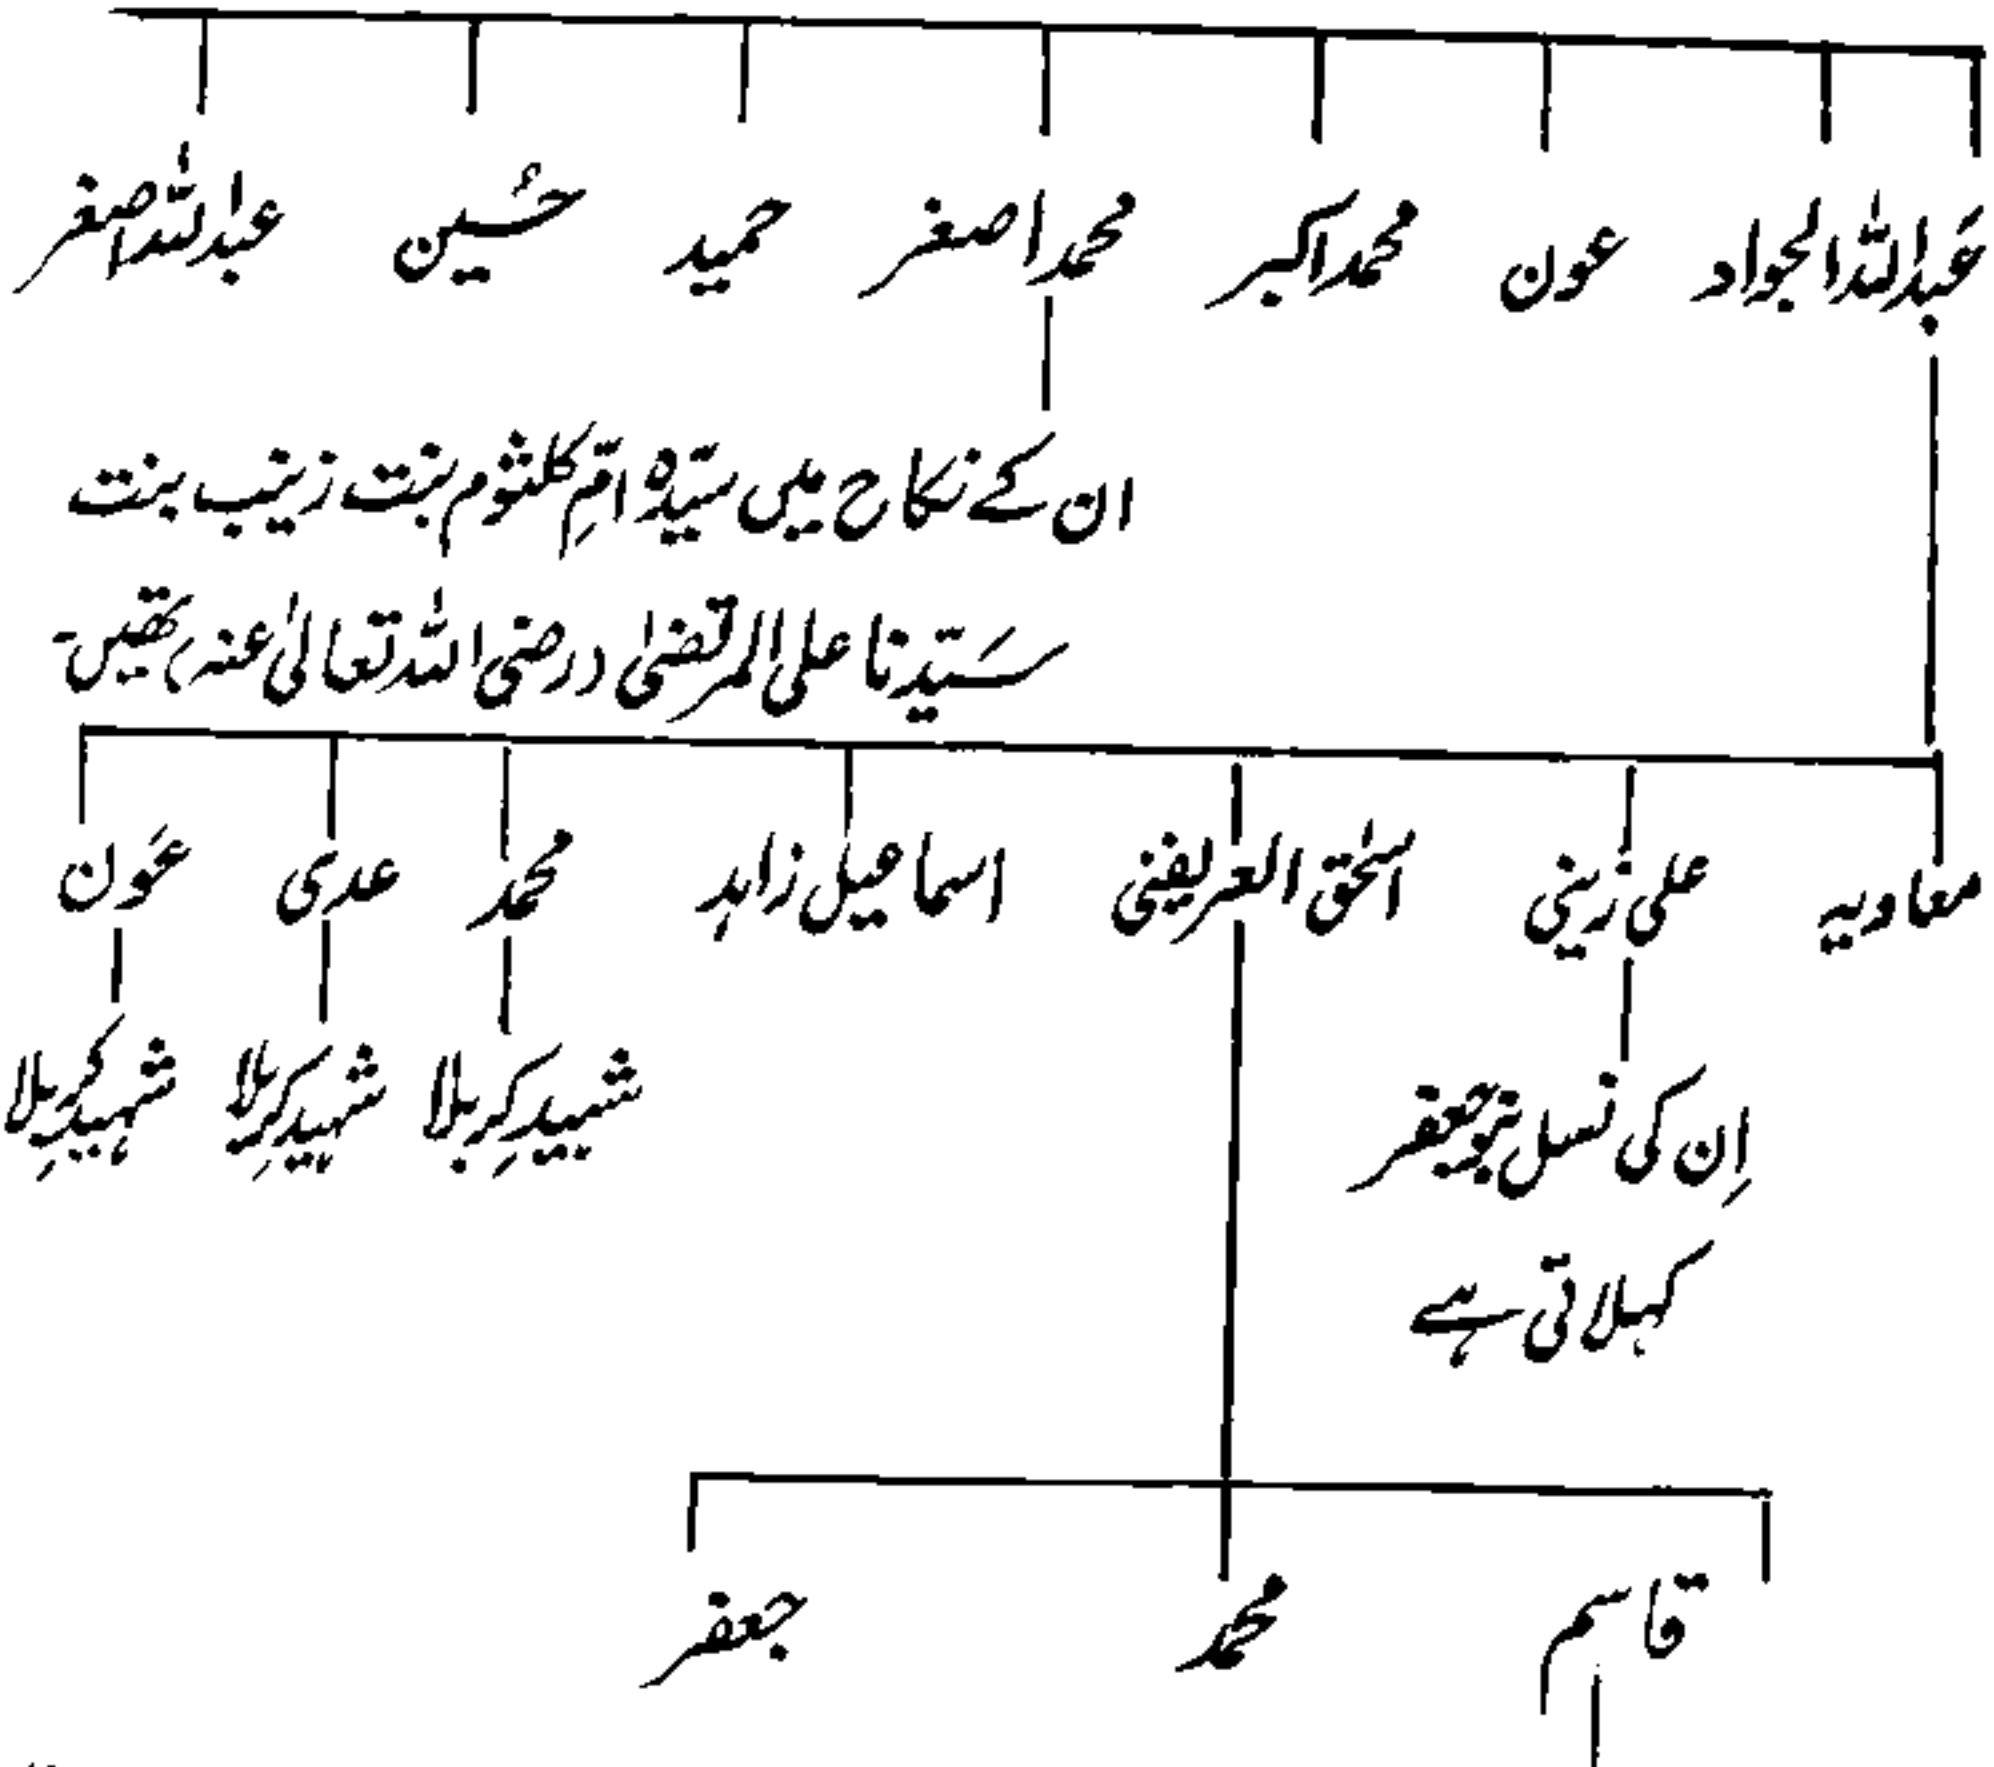 عبداللہ الجواد عون محمد اکبر محمد اصغر حمید حُسین عبداللہ اصغر
ان کے نکاح میں سیّدہ امِّ کلثوم بنت زینب بنت
سَیّدنا علی المرتضیٰ (رضی اللہ تعالیٰ عنہ) تھیں۔
معاویہ علی زینی اسحٰق العریضی اسماعیل زاہد محمد عدی عَون
شہیدِ کربلا شہیدِ کربلا شہیدِ کربلا
اِن کی نسل بنو جعفر
کہلاتی ہے
قاسم محمد جعفر